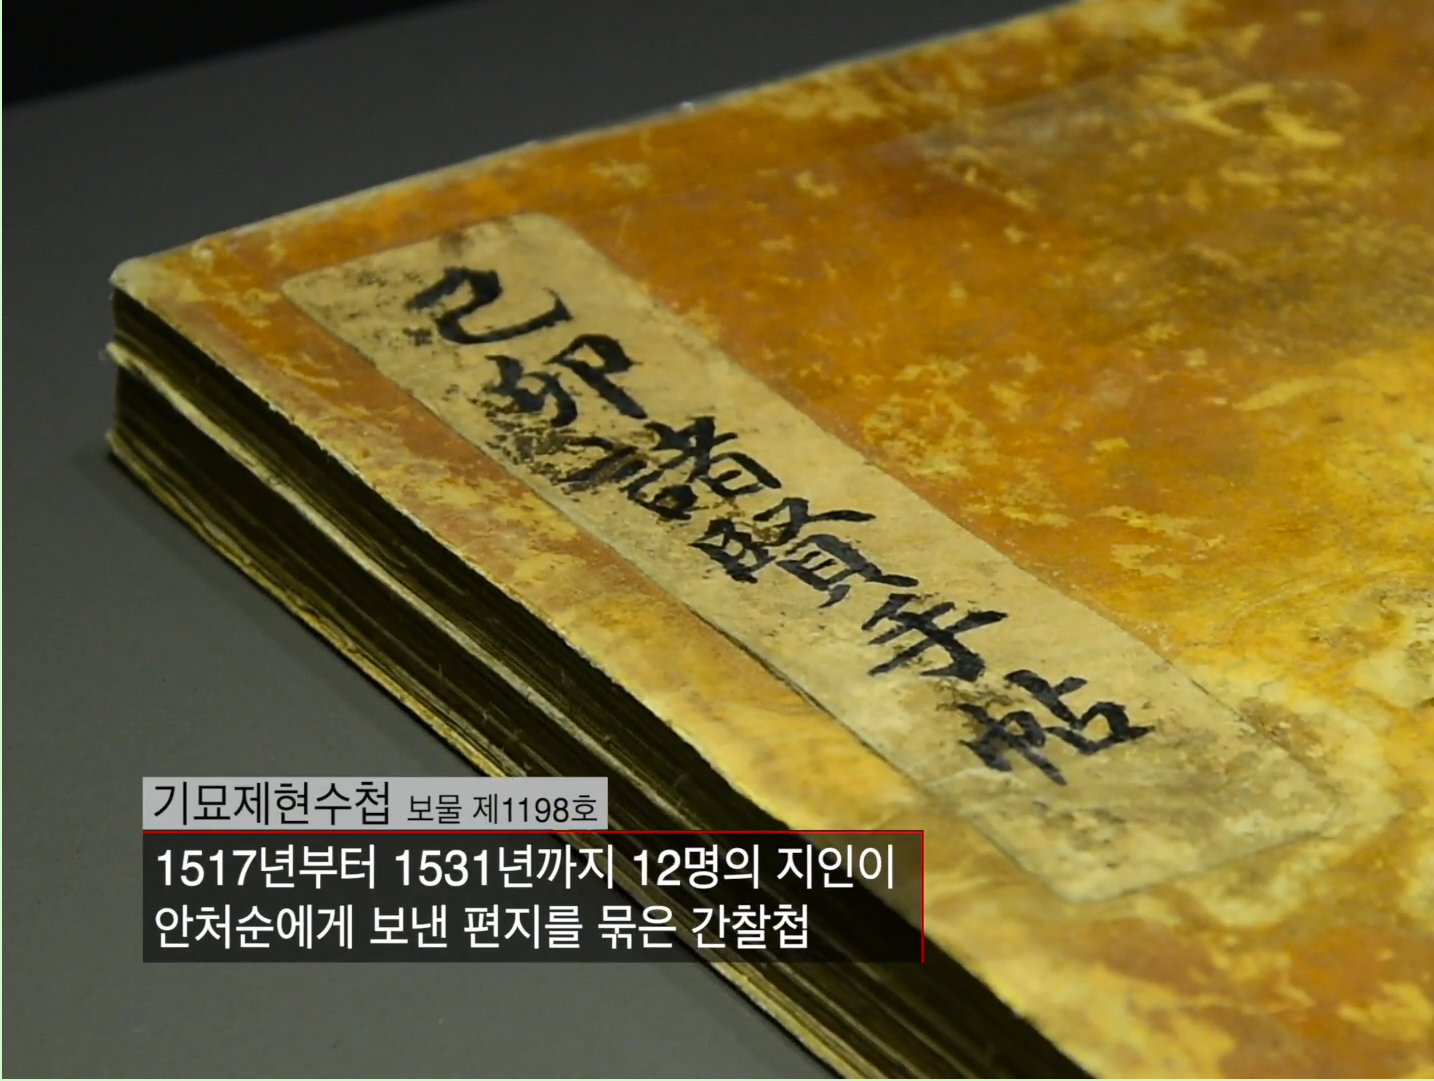 己卯諸賢手帖
기묘제현수첩 보물 제1198호
1517년부터 1531년까지 12명의 지인이
안처순에게 보낸 편지를 묶은 간찰첩